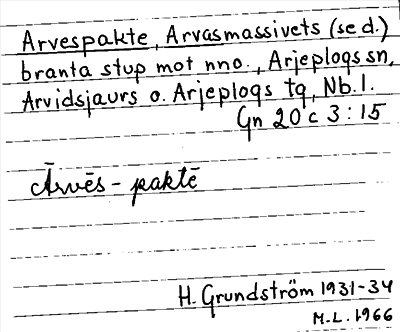 Arvespakte, Arvasmassivets (se d.)
branta stup mot nno., Arjeplogs sn,
Arvidsjaurs o. Arjeplogs tg, Nb. l.
Gn 20 c 3 : 15
Ārvēs - paktē
H. Grundström 1931-34
M.L. 1966